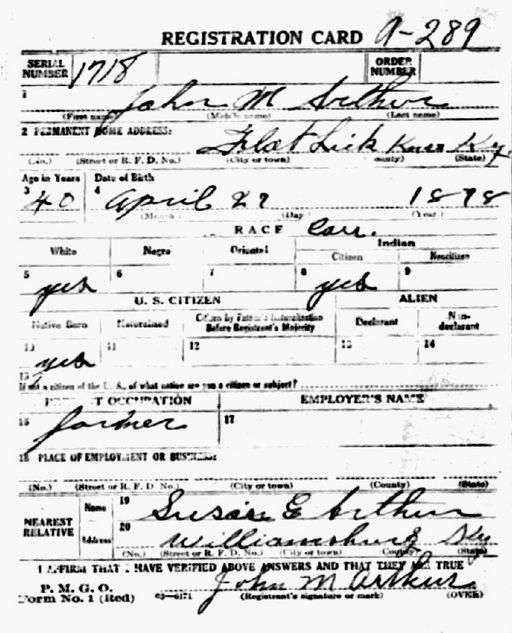 REGISTRATION CARD A-289
SERIAL NUMBER 1718 ORDER NUMBER
1 John M Arthur
(First name) (Middle name) (Last name)
2 PERMANENT HOME ADDRESS:
Flat Lick Knox Ky.
(No.) (Street or R. F. D. No.) (City or town) (County) (State)
Age in Years Date of Birth
3 40 4 April 27 1878
(Month) (Day) (Year)
RACE Cau.
White Negro Oriental Indian
Citizen Noncitizen
5 yes 6 7 8 yes 9
U. S. CITIZEN ALIEN
Native Born Naturalized Citizen by Father's Naturalization Before Registrant's Majority Declarant Non-declarant
10 yes 11 12 13 14
15
If not a citizen of the U. S., of what nation are you a citizen or subject?
PRESENT OCCUPATION EMPLOYER'S NAME
16 farmer 17
18 PLACE OF EMPLOYMENT OR BUSINESS:
(No.) (Street or R. F. D No.) (City or town) (County) (State)
NEAREST RELATIVE Name 19 Susan E Arthur
Address 20 Williamsburg Ky
(No.) (Street or R. F. D. No.) (City or town) County) (State)
I AFFIRM THAT I HAVE VERIFIED ABOVE ANSWERS AND THAT THEY ARE TRUE
P. M. G. O.
Form No. 1 (Red) 03—6171 John M Arthur
(Registrant's signature or mark) (OVER)